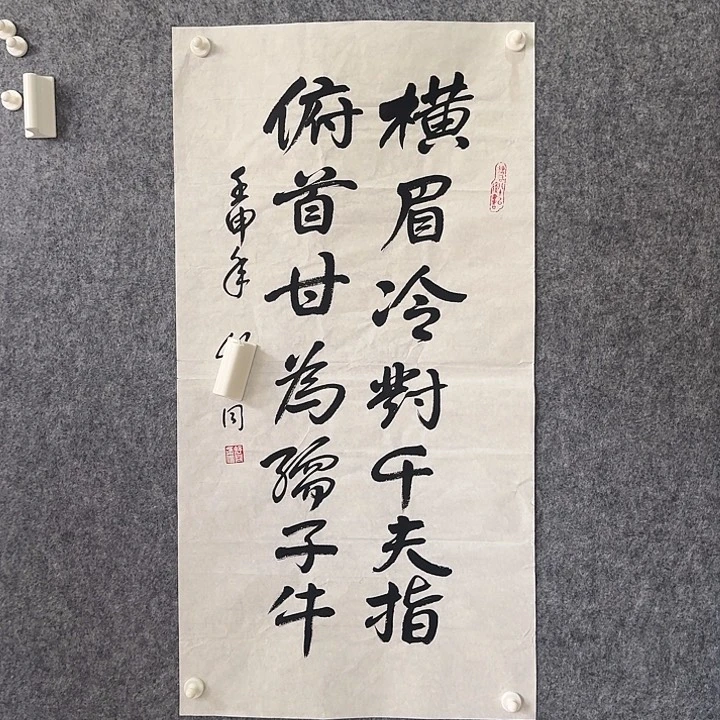 横眉冷對千夫指
俯首甘為孺子牛
壬申年
同